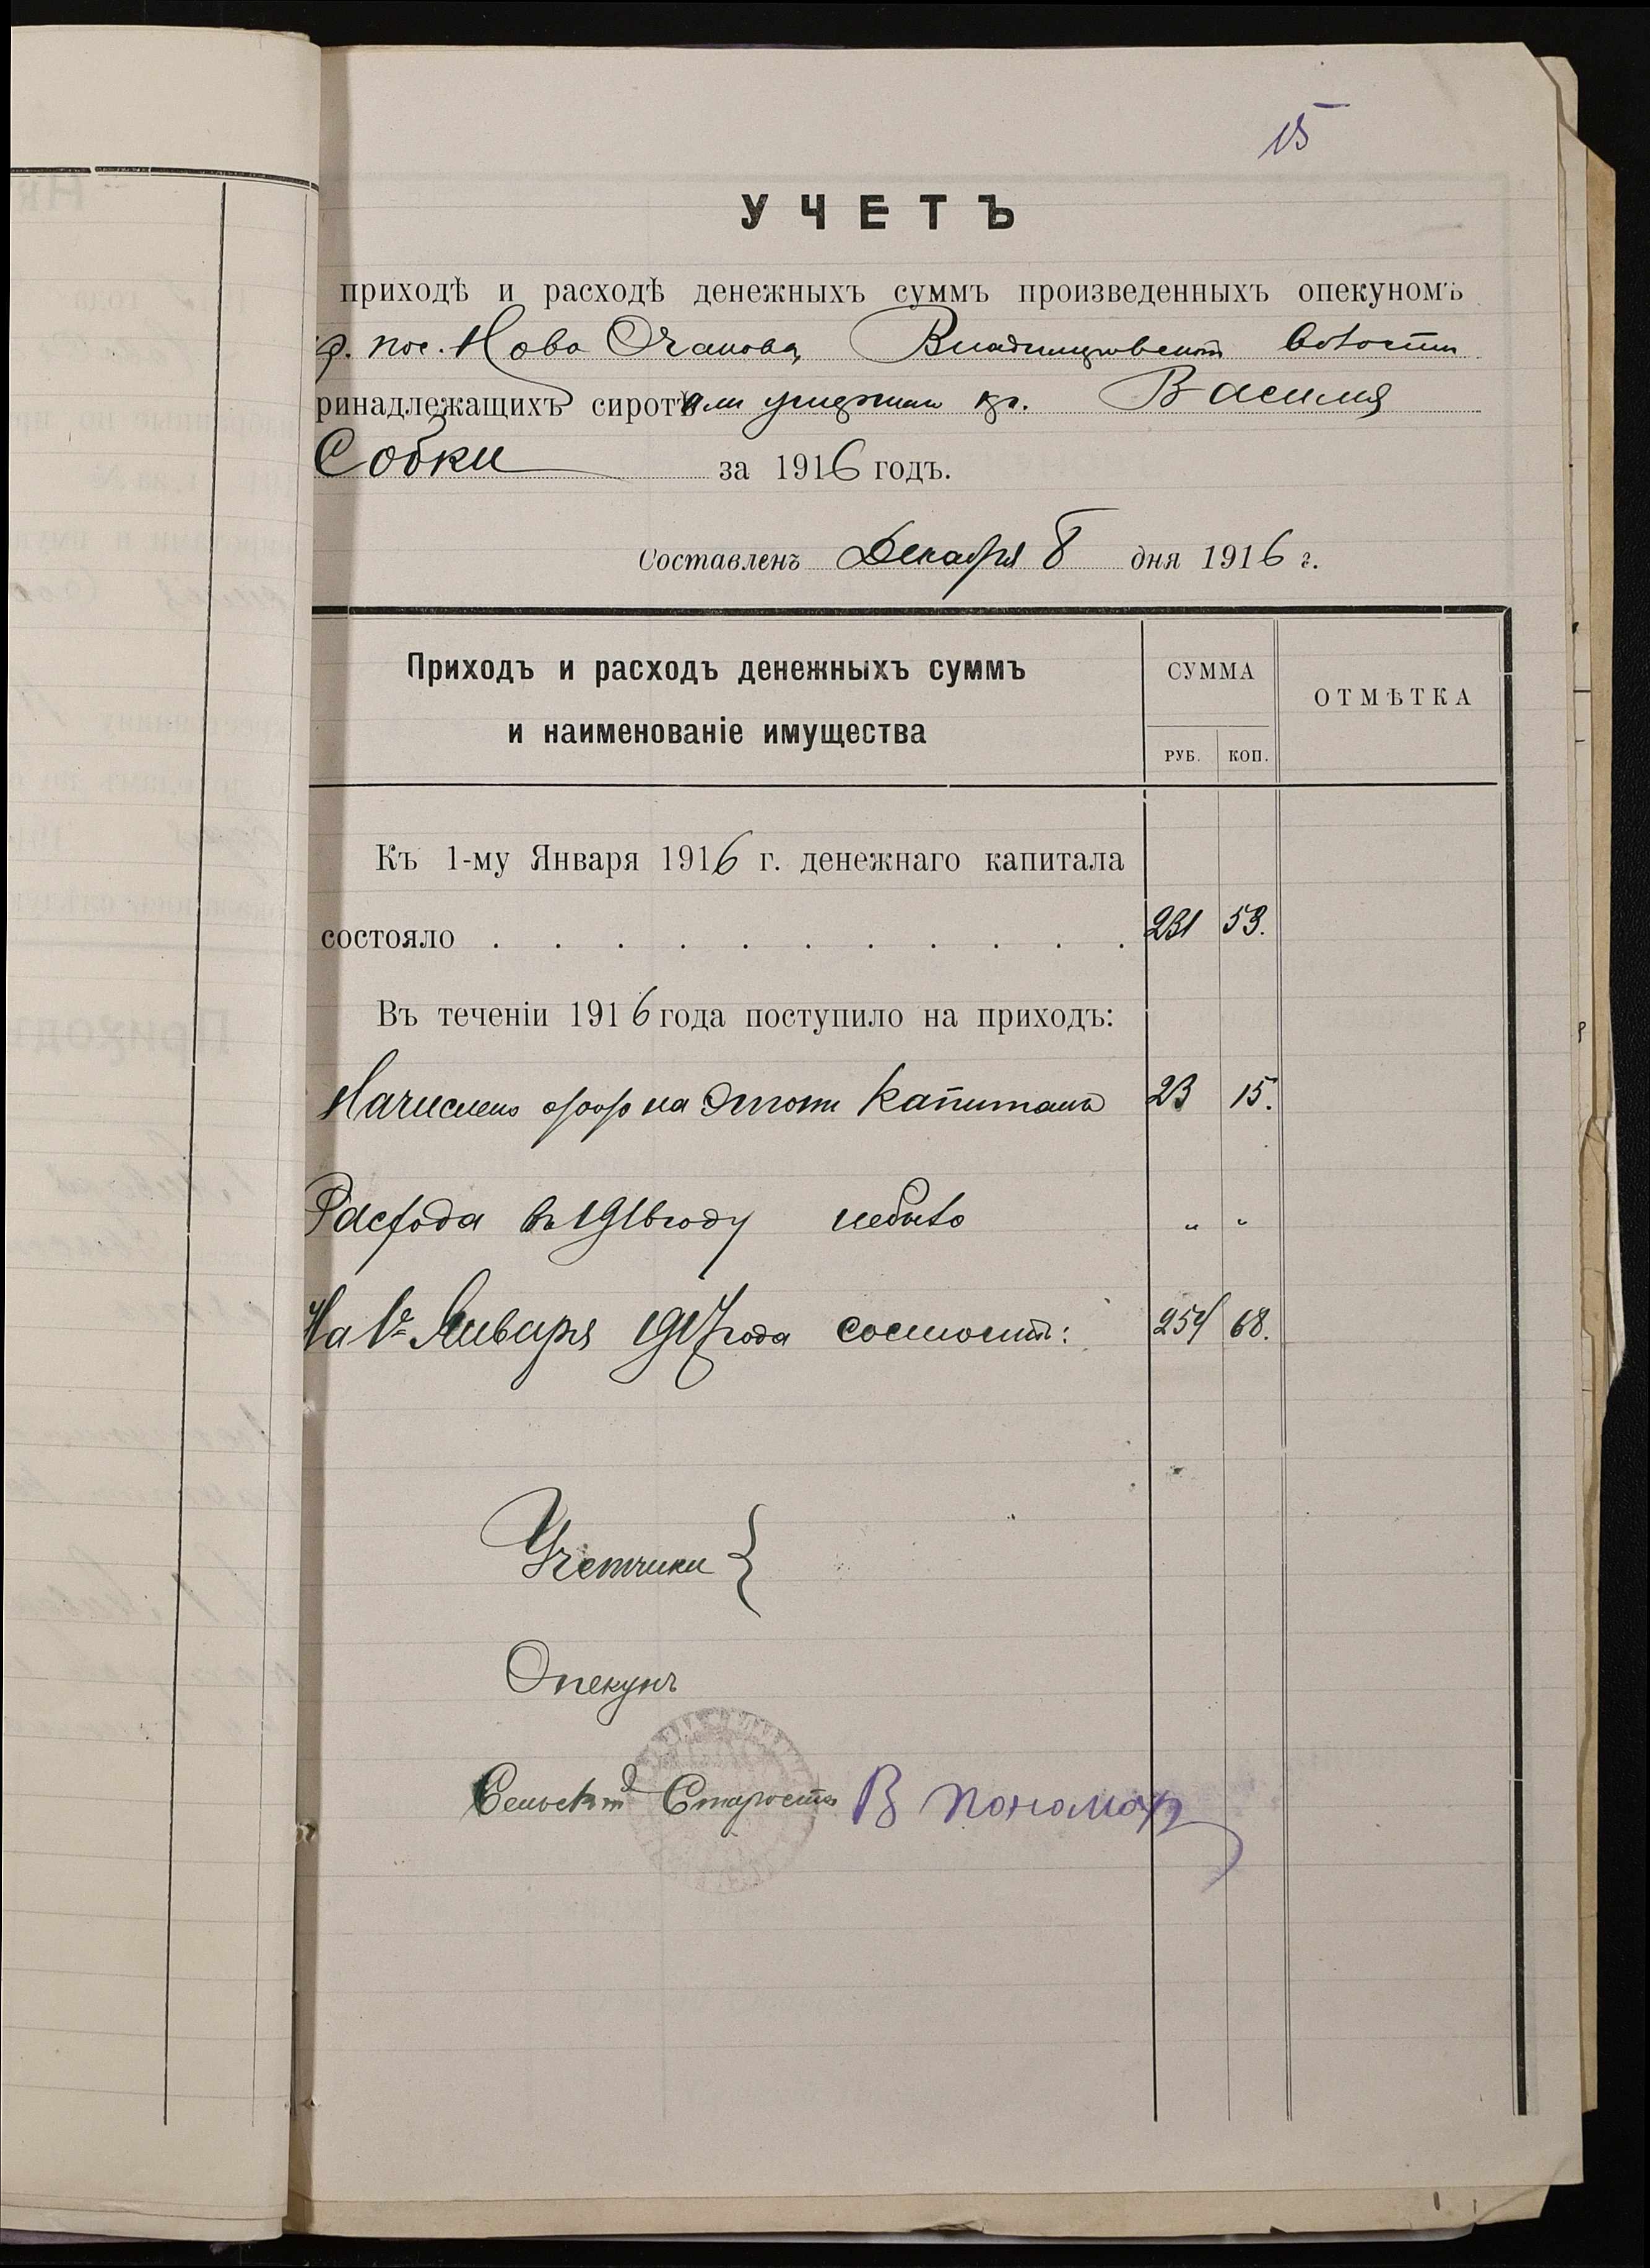 15
УЧЕТЪ
приходѣ и расходѣ денежныхъ суммъ произведенныхъ опекуномъ
пос. Ново Очакова, Владимировской волости
ринадлежащихъ сиротамъ умершаго кр. Василия
Собки за 1916 годъ.
Составленъ Декабря 8 дня 1916 г.
Приходъ и расходъ денежныхъ суммъ
и наименованіе имущества
СУММА
РУБ. КОП.
ОТМѢТКА
Къ 1-му Января 1916 г. денежнаго капитала
состояло . . . . . . . . . . . 231 53.
Въ теченіи 1916 года поступило на приходъ:
Начислено на этотъ капиталъ 23 15.
Расхода въ 1916 году небыло " "
На 1е Января 1917 года состоитъ: 254 68.
Учетчики {
Опекунъ
Сельскій Староста В Пономар